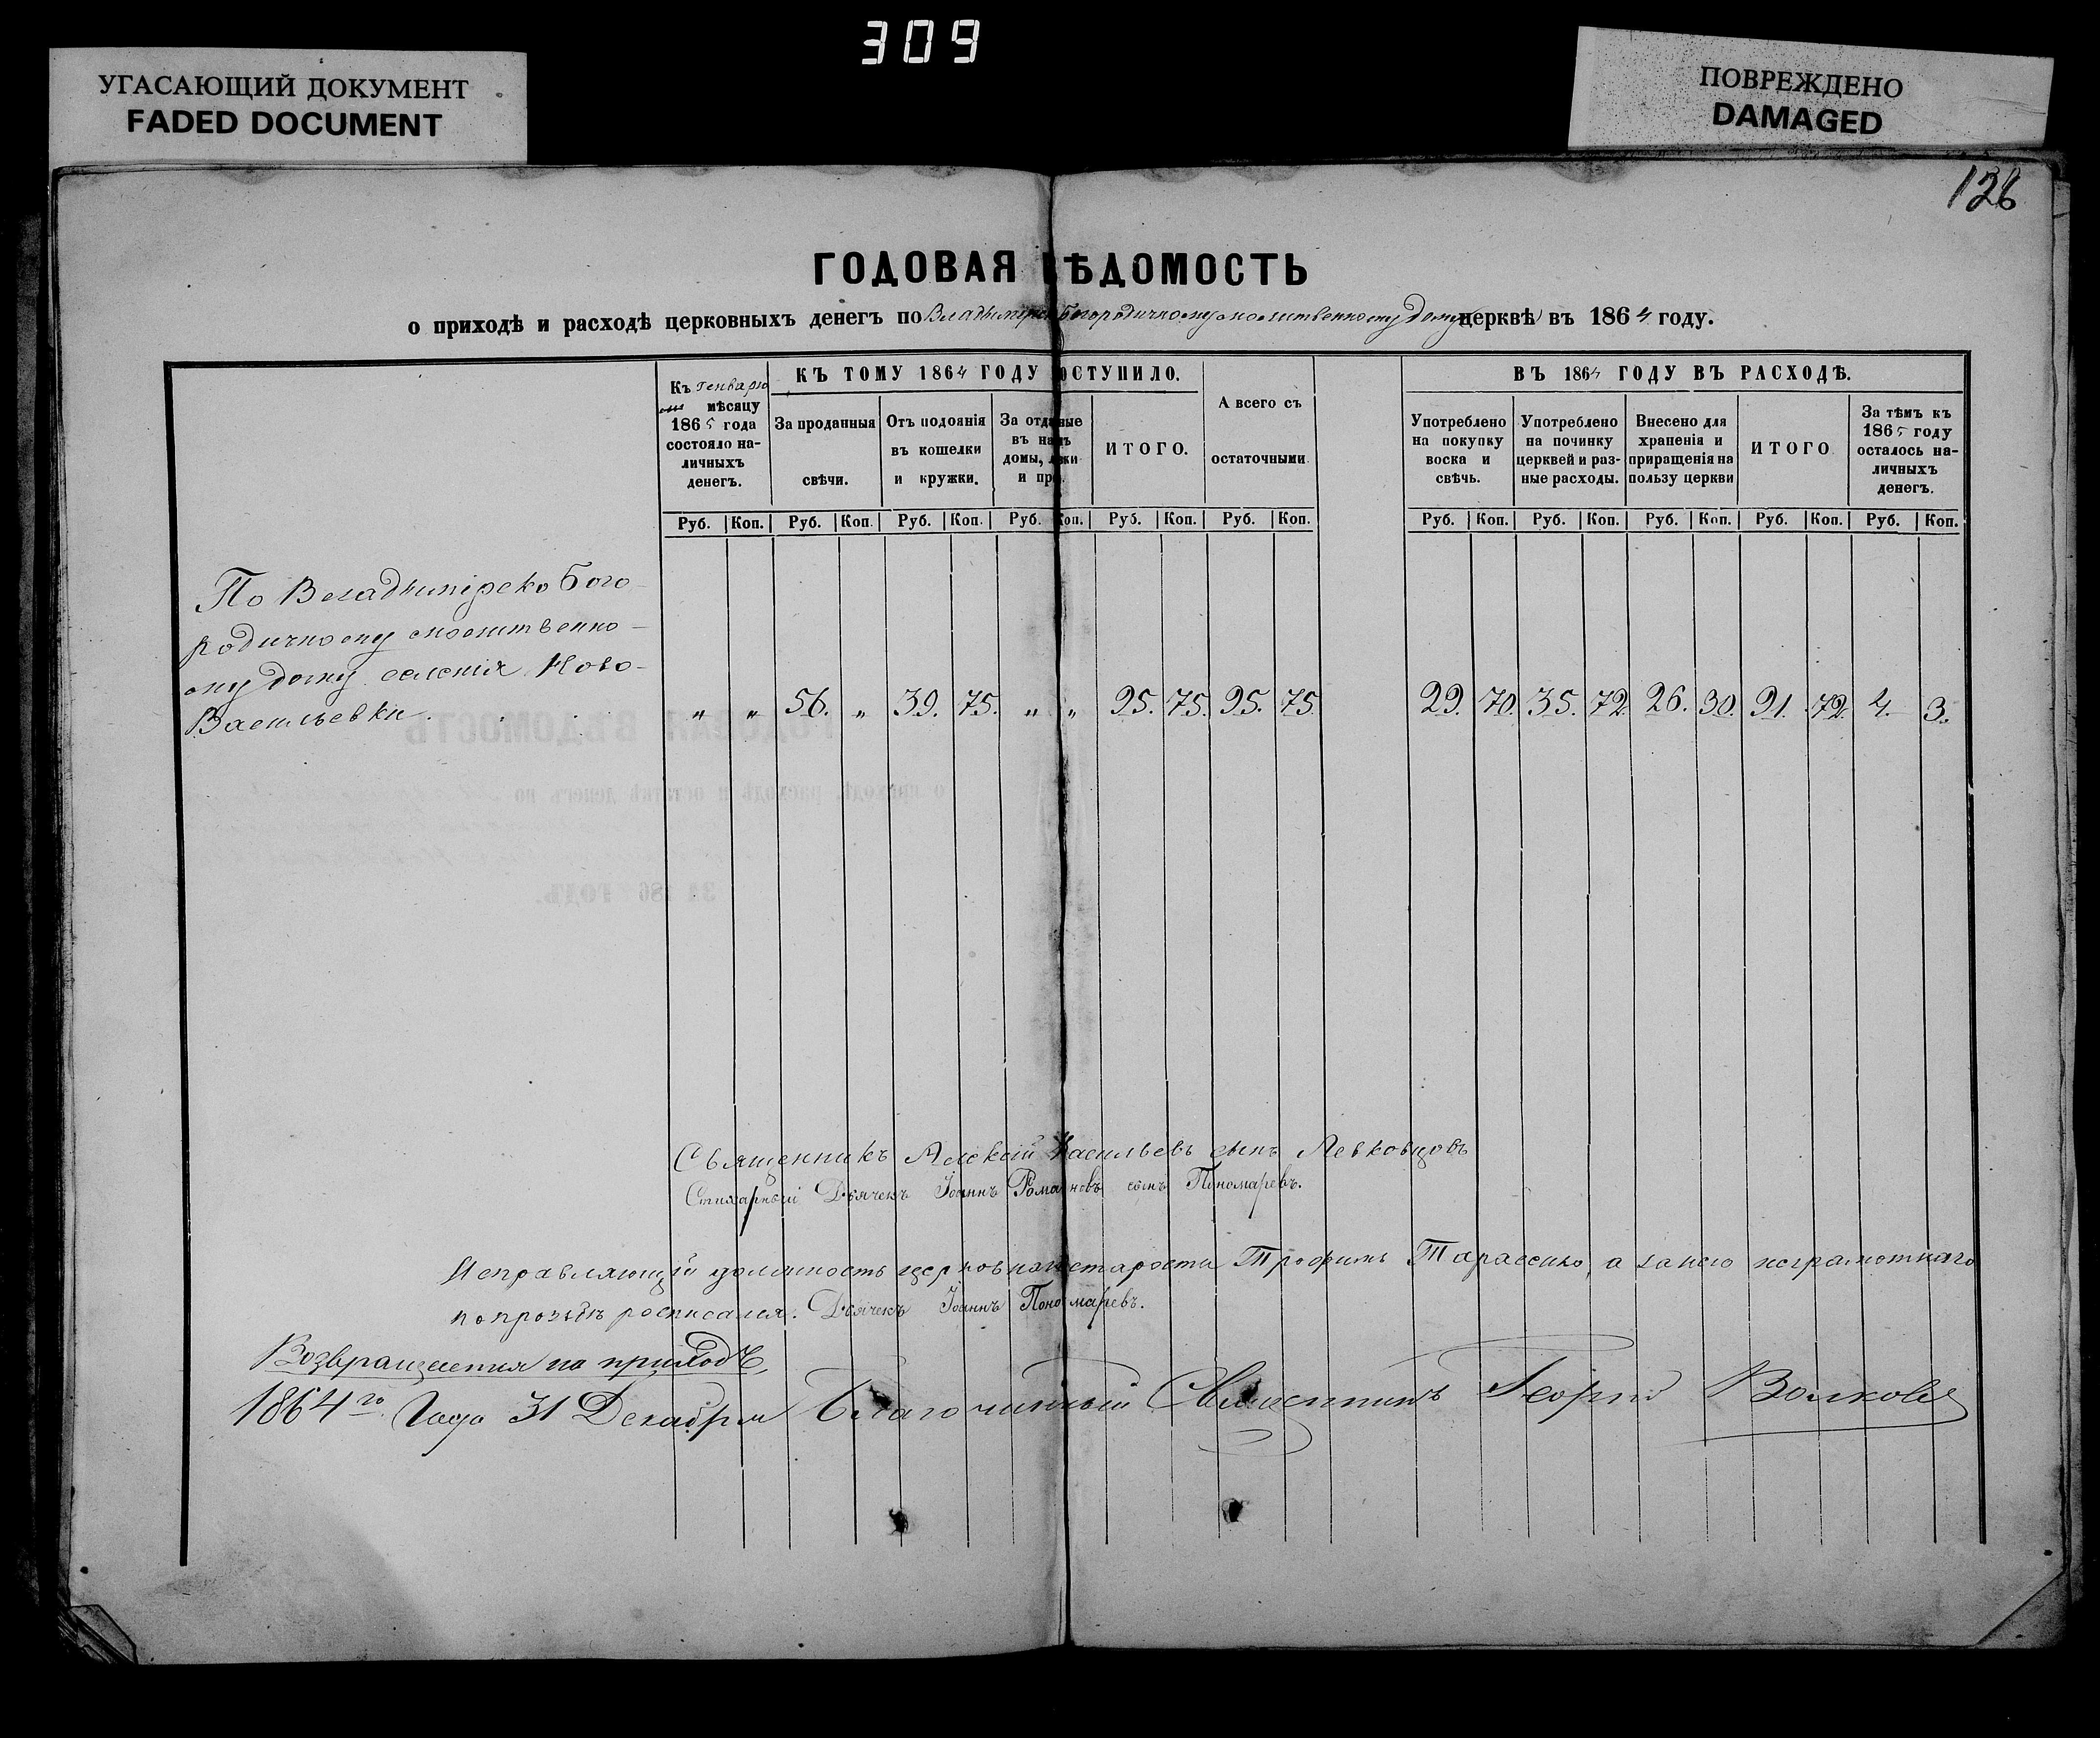 309
УГАСАЮЩИЙ ДОКУМЕНТ
FADED DOCUMENT
ПОВРЕЖДЕНО
DAMAGED
126
ГОДОВАЯ ВѢДОМОСТЬ
о приходѣ и расходѣ церковныхъ денегъ по Владимірско Богородичному молитвенному дому церквѣ въ 1864 году.
Къ генварю мѣсяцу 1865 года состояло наличныхъ денегъ.
КЪ ТОМУ 1864 ГОДУ ПОСТУПИЛО.
За проданныя свѣчи.
Отъ подоянія въ кошелки и кружки.
За отданные въ наемъ домы, лавки и проч.
ИТОГО.
А всего съ остаточными
ВЪ 1864 ГОДУ ВЪ РАСХОДѢ.
Употреблено на покупку воска и свѣчь.
Употреблено на починку церквей и разные расходы.
Внесено для храненія и приращенія на пользу церкви
ИТОГО
За тѣмъ къ 1865 году осталось наличныхъ денегъ.
Руб. Коп. Руб. Коп. Руб. Коп. Руб. Коп. Руб. Коп. Руб. Коп. Руб. Коп. Руб. Коп. Руб. Коп. Руб. Коп. Руб. Коп.
По Владимірско Бого-
родичному молитвенно-
му дому селенія Ново-
Васильевки. „ „ 56. „ 39. 75. „ „ 95. 75. 95. 75. 29. 70. 35. 72. 26. 30. 91. 72. 4. 3.
ГОДОВАЯ ВѢДОМОСТЬ
о приходѣ, расходѣ и остаткѣ денегъ по
ЗА 186 ГОДЪ.
Священникъ Алексій Васильевъ сынъ Левковцовъ
Стихарный Дьячекъ Іоаннъ Романовъ сынъ Пономаревъ.
Исправляющій должность церковнаго старосты Трофимъ Тарасенко, а за него неграмотнаго
по прозьбѣ росписался. Дьячекъ Іоаннъ Пономаревъ.
Возвращается на приходъ,
1864го Года 31 Декабря Благочинный Священникъ Георгій Волковъ